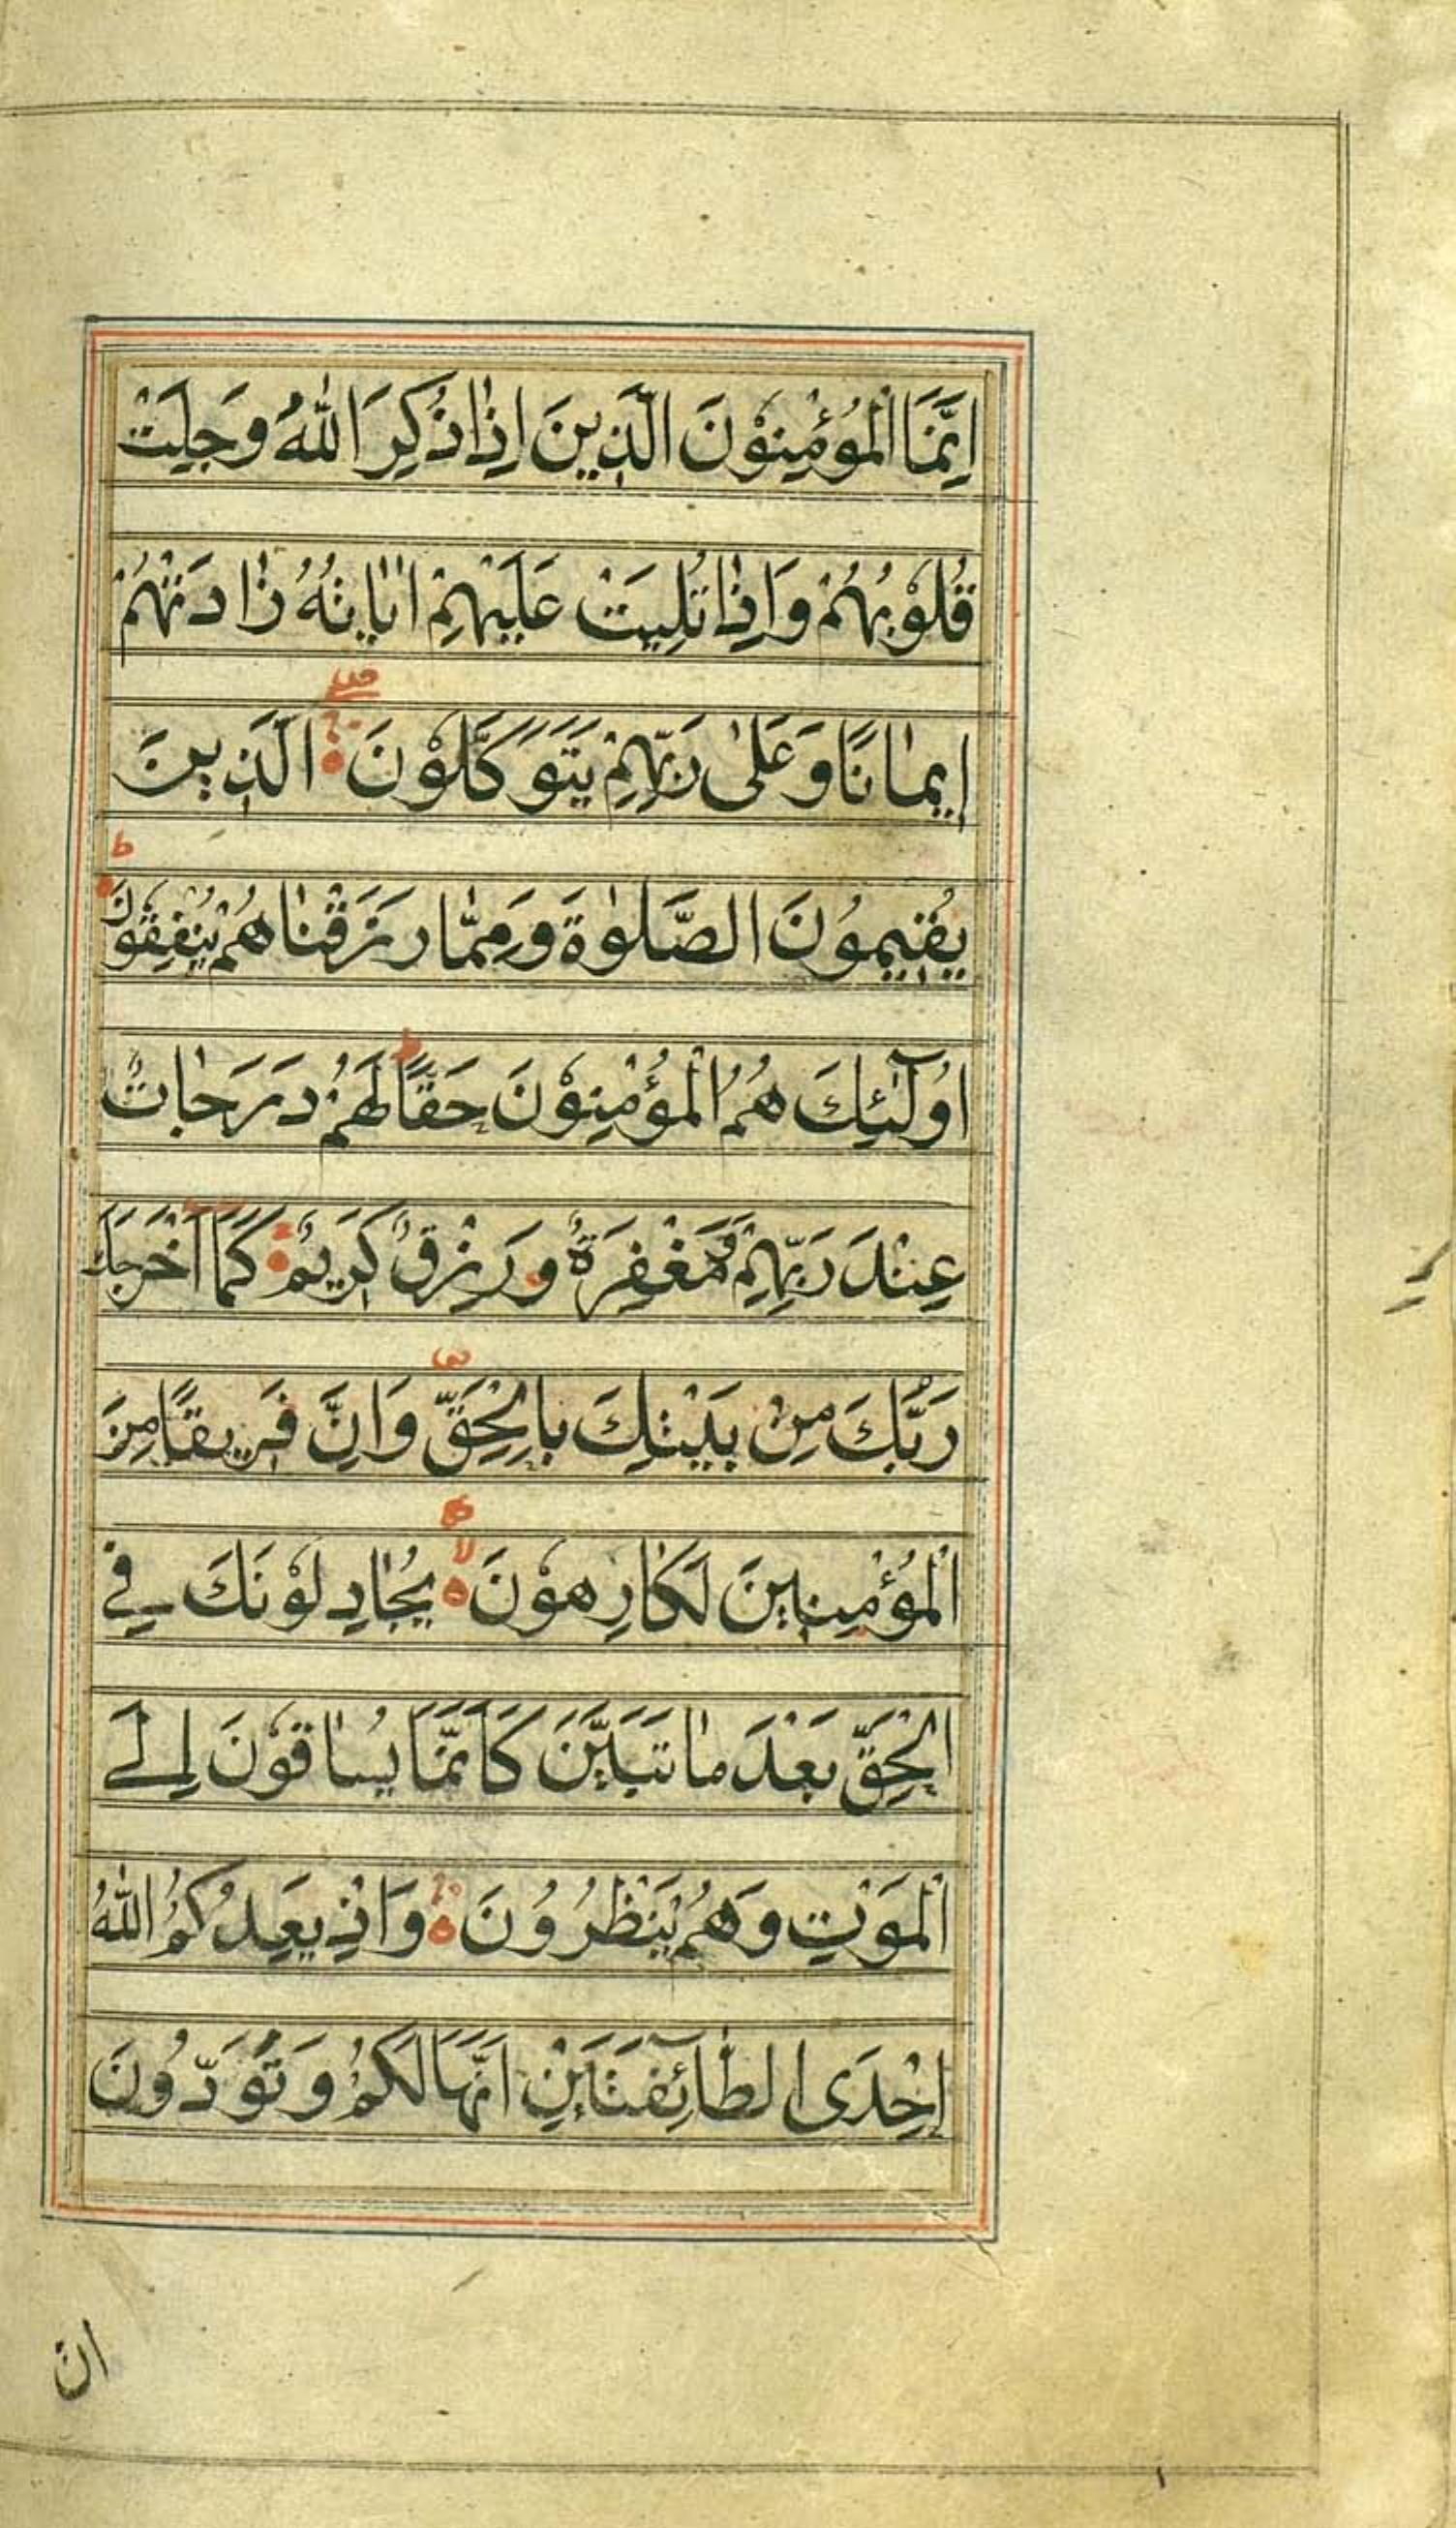 اِنَّمَا الْمُؤْمِنُوْنَ الَّذِينَ اِذٰا ذُكِرَ اللّٰهُ وَجِلَتْ
قُلُوْبُهُمْ وَاِذٰا تُلِيَتْ عَلَيْهِمْ اٰيٰاتُهُ زٰادَتْهُمْ
اِيمٰانًا وَعَلٰى رَبِّهِمْ يَتَوَكَّلُوْنَ ۝ الَّذِينَ
يُقِيمُونَ الصَّلٰوةَ وَمِمّٰا رَزَقْنٰاهُمْ يُنْفِقُوْنَ ط
اُولٰٓئِكَ هُمُ الْمُؤْمِنُوْنَ حَقًّا ط لَهُمْ دَرَجٰاتٌ
عِنْدَ رَبِّهِمْ وَمَغْفِرَةٌ وَرِزْقٌ كَرِيمٌ ۝ كَمَا اَخْرَجَكَ
رَبُّكَ مِنْ بَيْتِكَ بِالْحَقِّ ص وَاِنَّ فَرِيقًا مِنَ
الْمُؤْمِنِينَ لَكٰارِهُوْنَ ۝ لا يُجٰادِلُوْنَكَ فِي
الْحَقِّ بَعْدَ مٰا تَبَيَّنَ كَاَنَّمَا يُسٰاقُوْنَ اِلَے
الْمَوْتِ وَهُمْ يَنْظُرُوُنَ ۝ وَاِذْ يَعِدُكُمُ اللّٰهُ
اِحْدَى الطّٰٓائِفَتَيْنِ اَنَّهَا لَكُمْ وَتَوَدُّونَ
ان